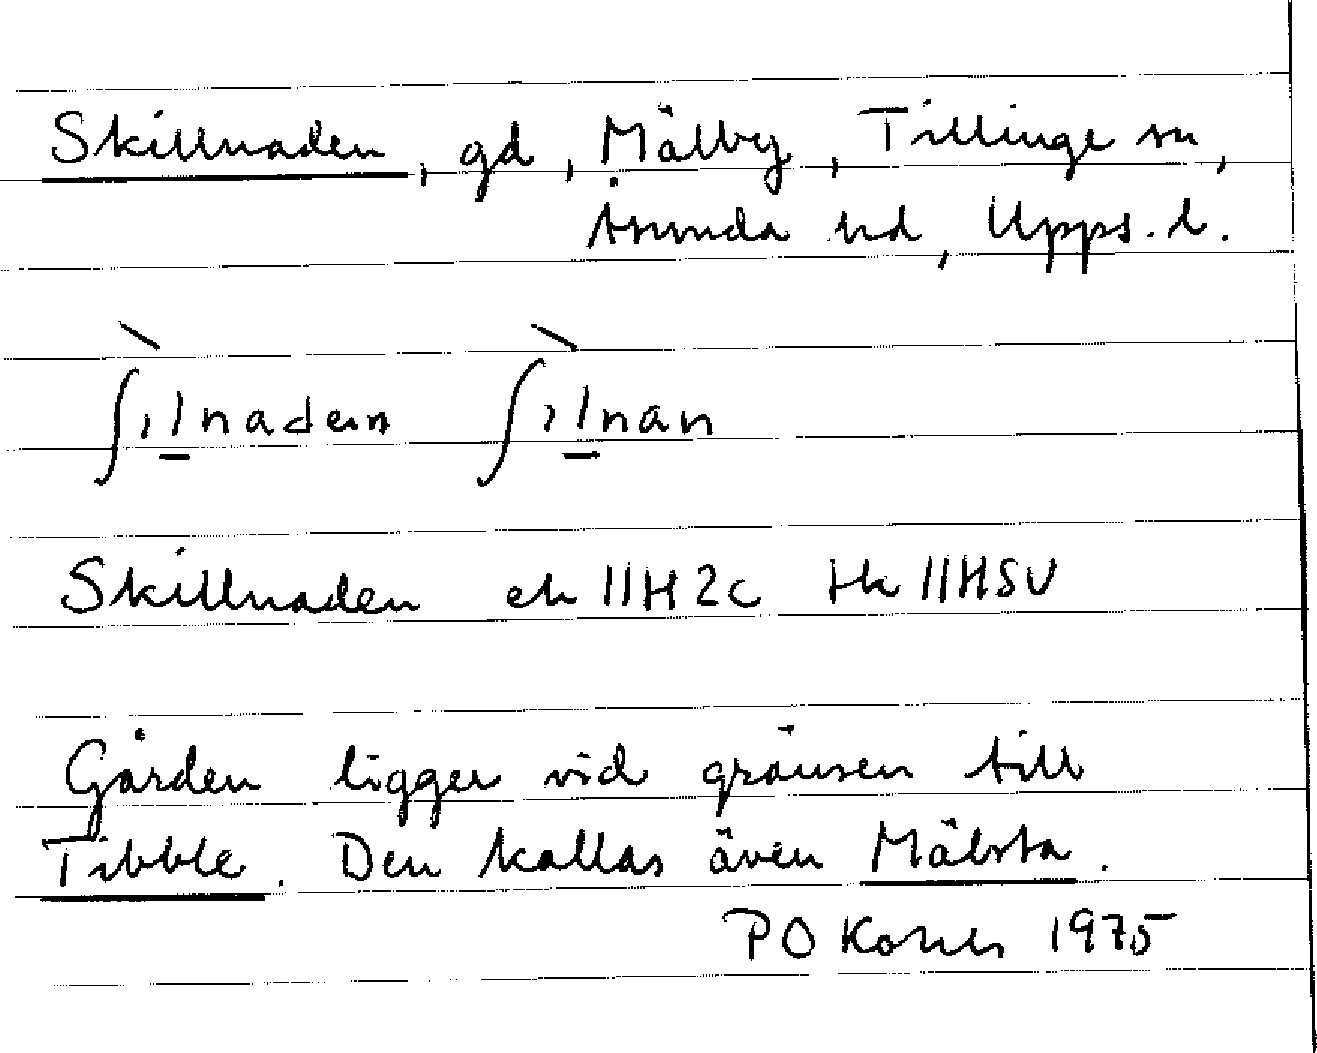 Skillnaden, gd, Mälby, Tillinge sn,
Åsunda hd, Upps. l.
ʃɪlnaden ʃɪlnan
Skillnaden ek 11H2c tk 11HSV
Gården ligger vid gränsen till
Tibble. Den kallas även Mälsta.
P O 1975